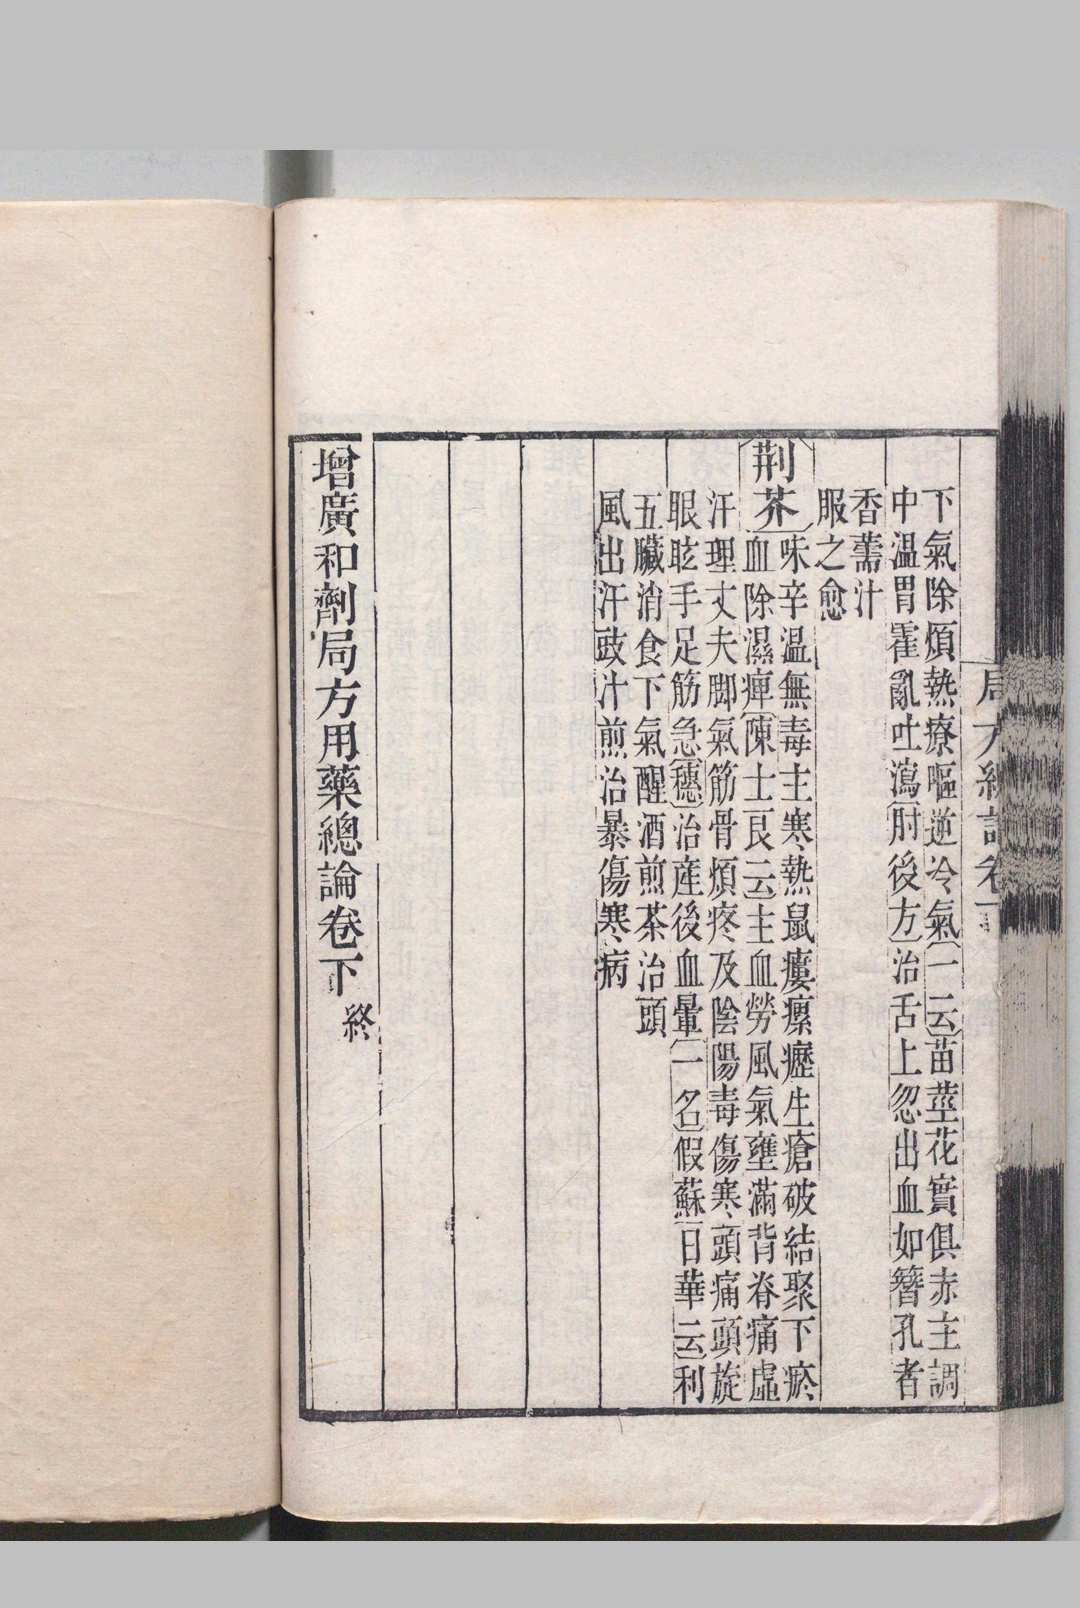 下氣除煩熱療嘔逆冷氣一云苗莖花實俱赤主調
中溫胃霍亂吐瀉肘後方治舌上忽出血如簪孔者
香薷汁
服之愈
荆芥
味辛溫無毒主寒熱鼠瘻瘰癧生瘡破結聚下瘀
血除濕痺陳士良云主血勞風氣壅滿背脊痛虛
汗理丈夫脚氣筋骨煩疼及陰陽毒傷寒頭痛頭旋
眼眩手足筋急穗治產後血暈一名假蘇日華云利
五臟消食下氣醒酒煎茶治頭
風出汗豉汁煎治暴傷寒病
增廣和劑局方用藥總論卷下
終